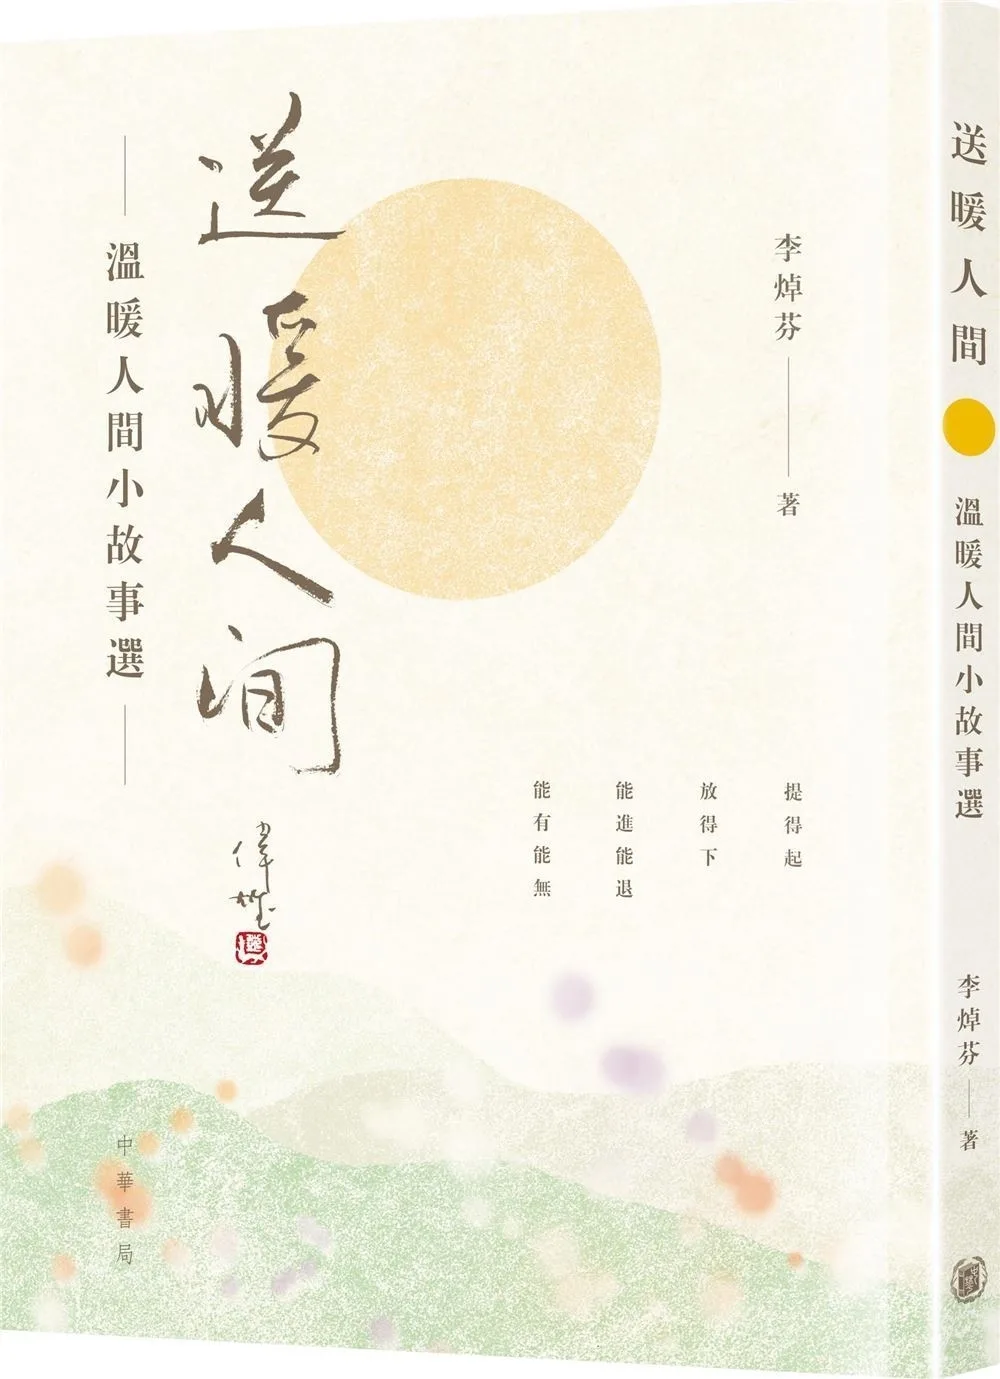 李焯芬 著
送暖人间
溫暖人間小故事選
提得起
放得下
能進能退
能有能無
中華書局
送暖人間
溫暖人間小故事選
李焯芬 著